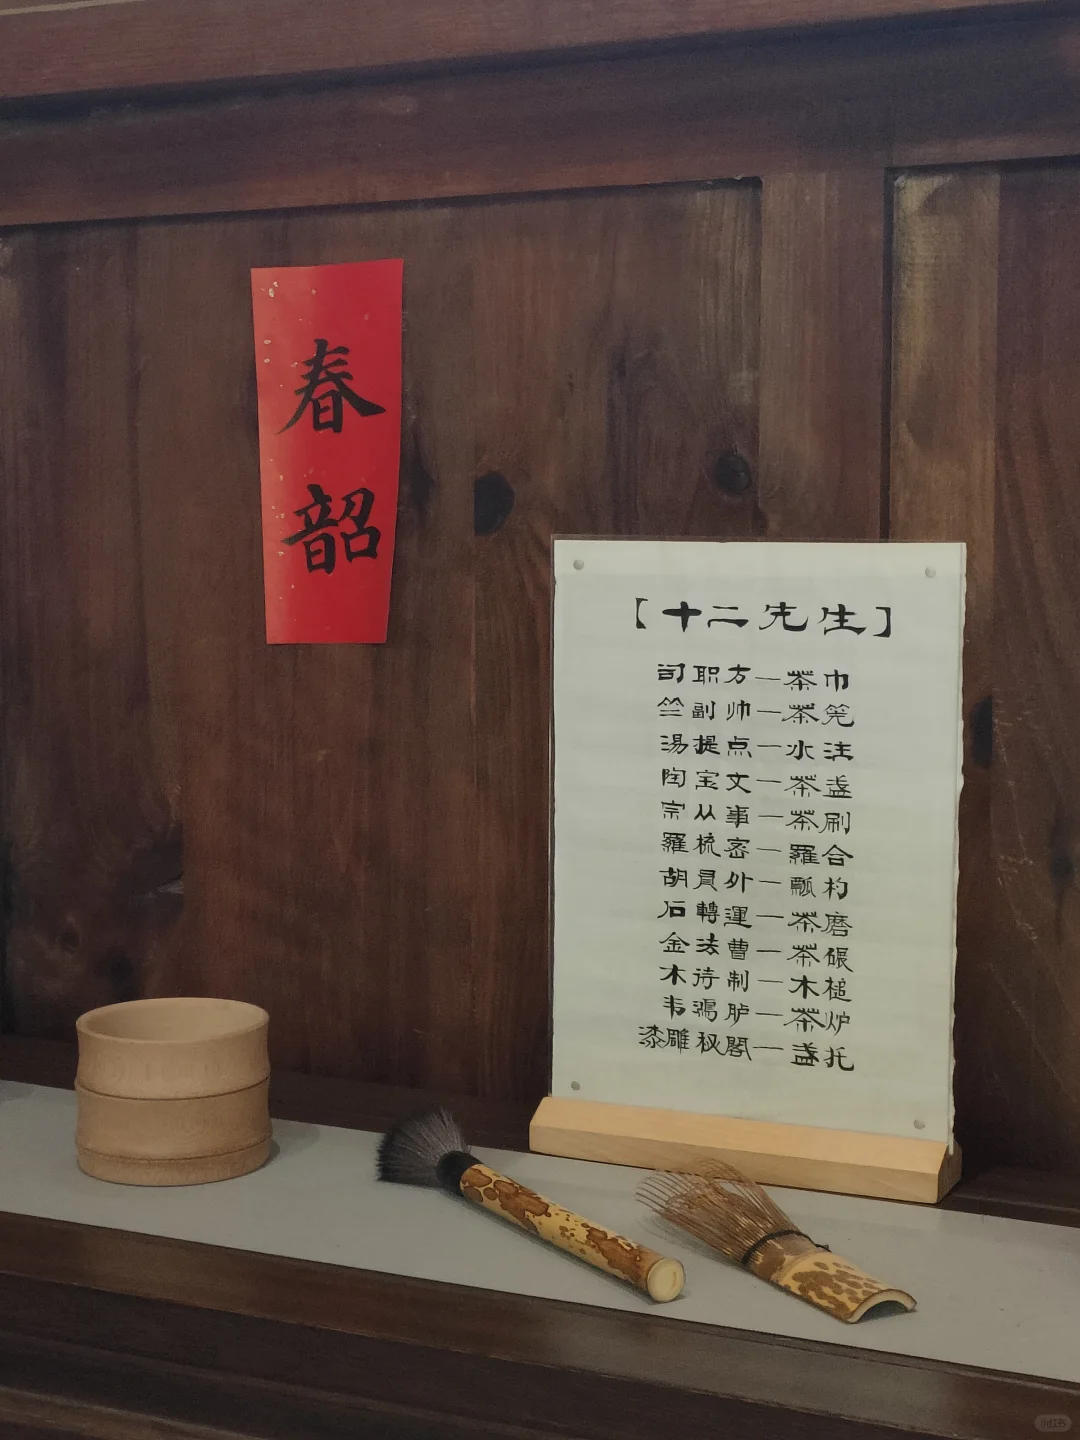 春
韶
【十二先生】
司职方—茶巾
竺副帅—茶筅
汤提点—水注
陶宝文—茶盏
宗从事—茶刷
羅枢密—羅合
胡員外—瓢杓
石轉運—茶磨
金法曹—茶碾
木待制—木槌
韦鸿胪—茶炉
漆雕秘閣—盏托
小红书